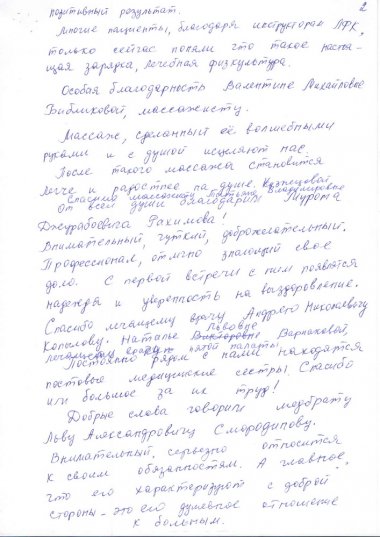 2
позитивный результат.
Многие пациенты, благодаря инструкторам ЛФК,
только сейчас поняли что такое настоя-
щая зарядка, лечебная физкультура.
Особая благодарность Валентине Михайловне
Бибиковой, массажисту.
Массаж, сделанный её волшебными
руками и с душой исцеляют нас.
После такого массажа становится
легче и радостнее на душе.
Спасибо массажисту Татьяне Владимировне Кузнецовой
От всей души благодарим Мурота
Джурабоевича Рахимова!
Внимательный, чуткий, доброжелательный.
Профессионал, отлично знающий свое
дело. С первой встречи с ним появятся
надежда и уверенность на выздоровление.
Спасибо лечащему врачу Андрею Николаевичу
Копылову. Наталье Викторовне Львовне Варнаковой,
лечащему врачу пятой палаты.
Постоянно рядом с нами находятся
постовые медицинские сестры. Спасибо
им большое за их труд!
Добрые слова говорили медбрату
Льву Александровичу Смородинову.
Внимательный, серьезно относится
к своим обязанностям. А главное,
что его характеризуют с доброй
стороны – это его душевное отношение
к больным.